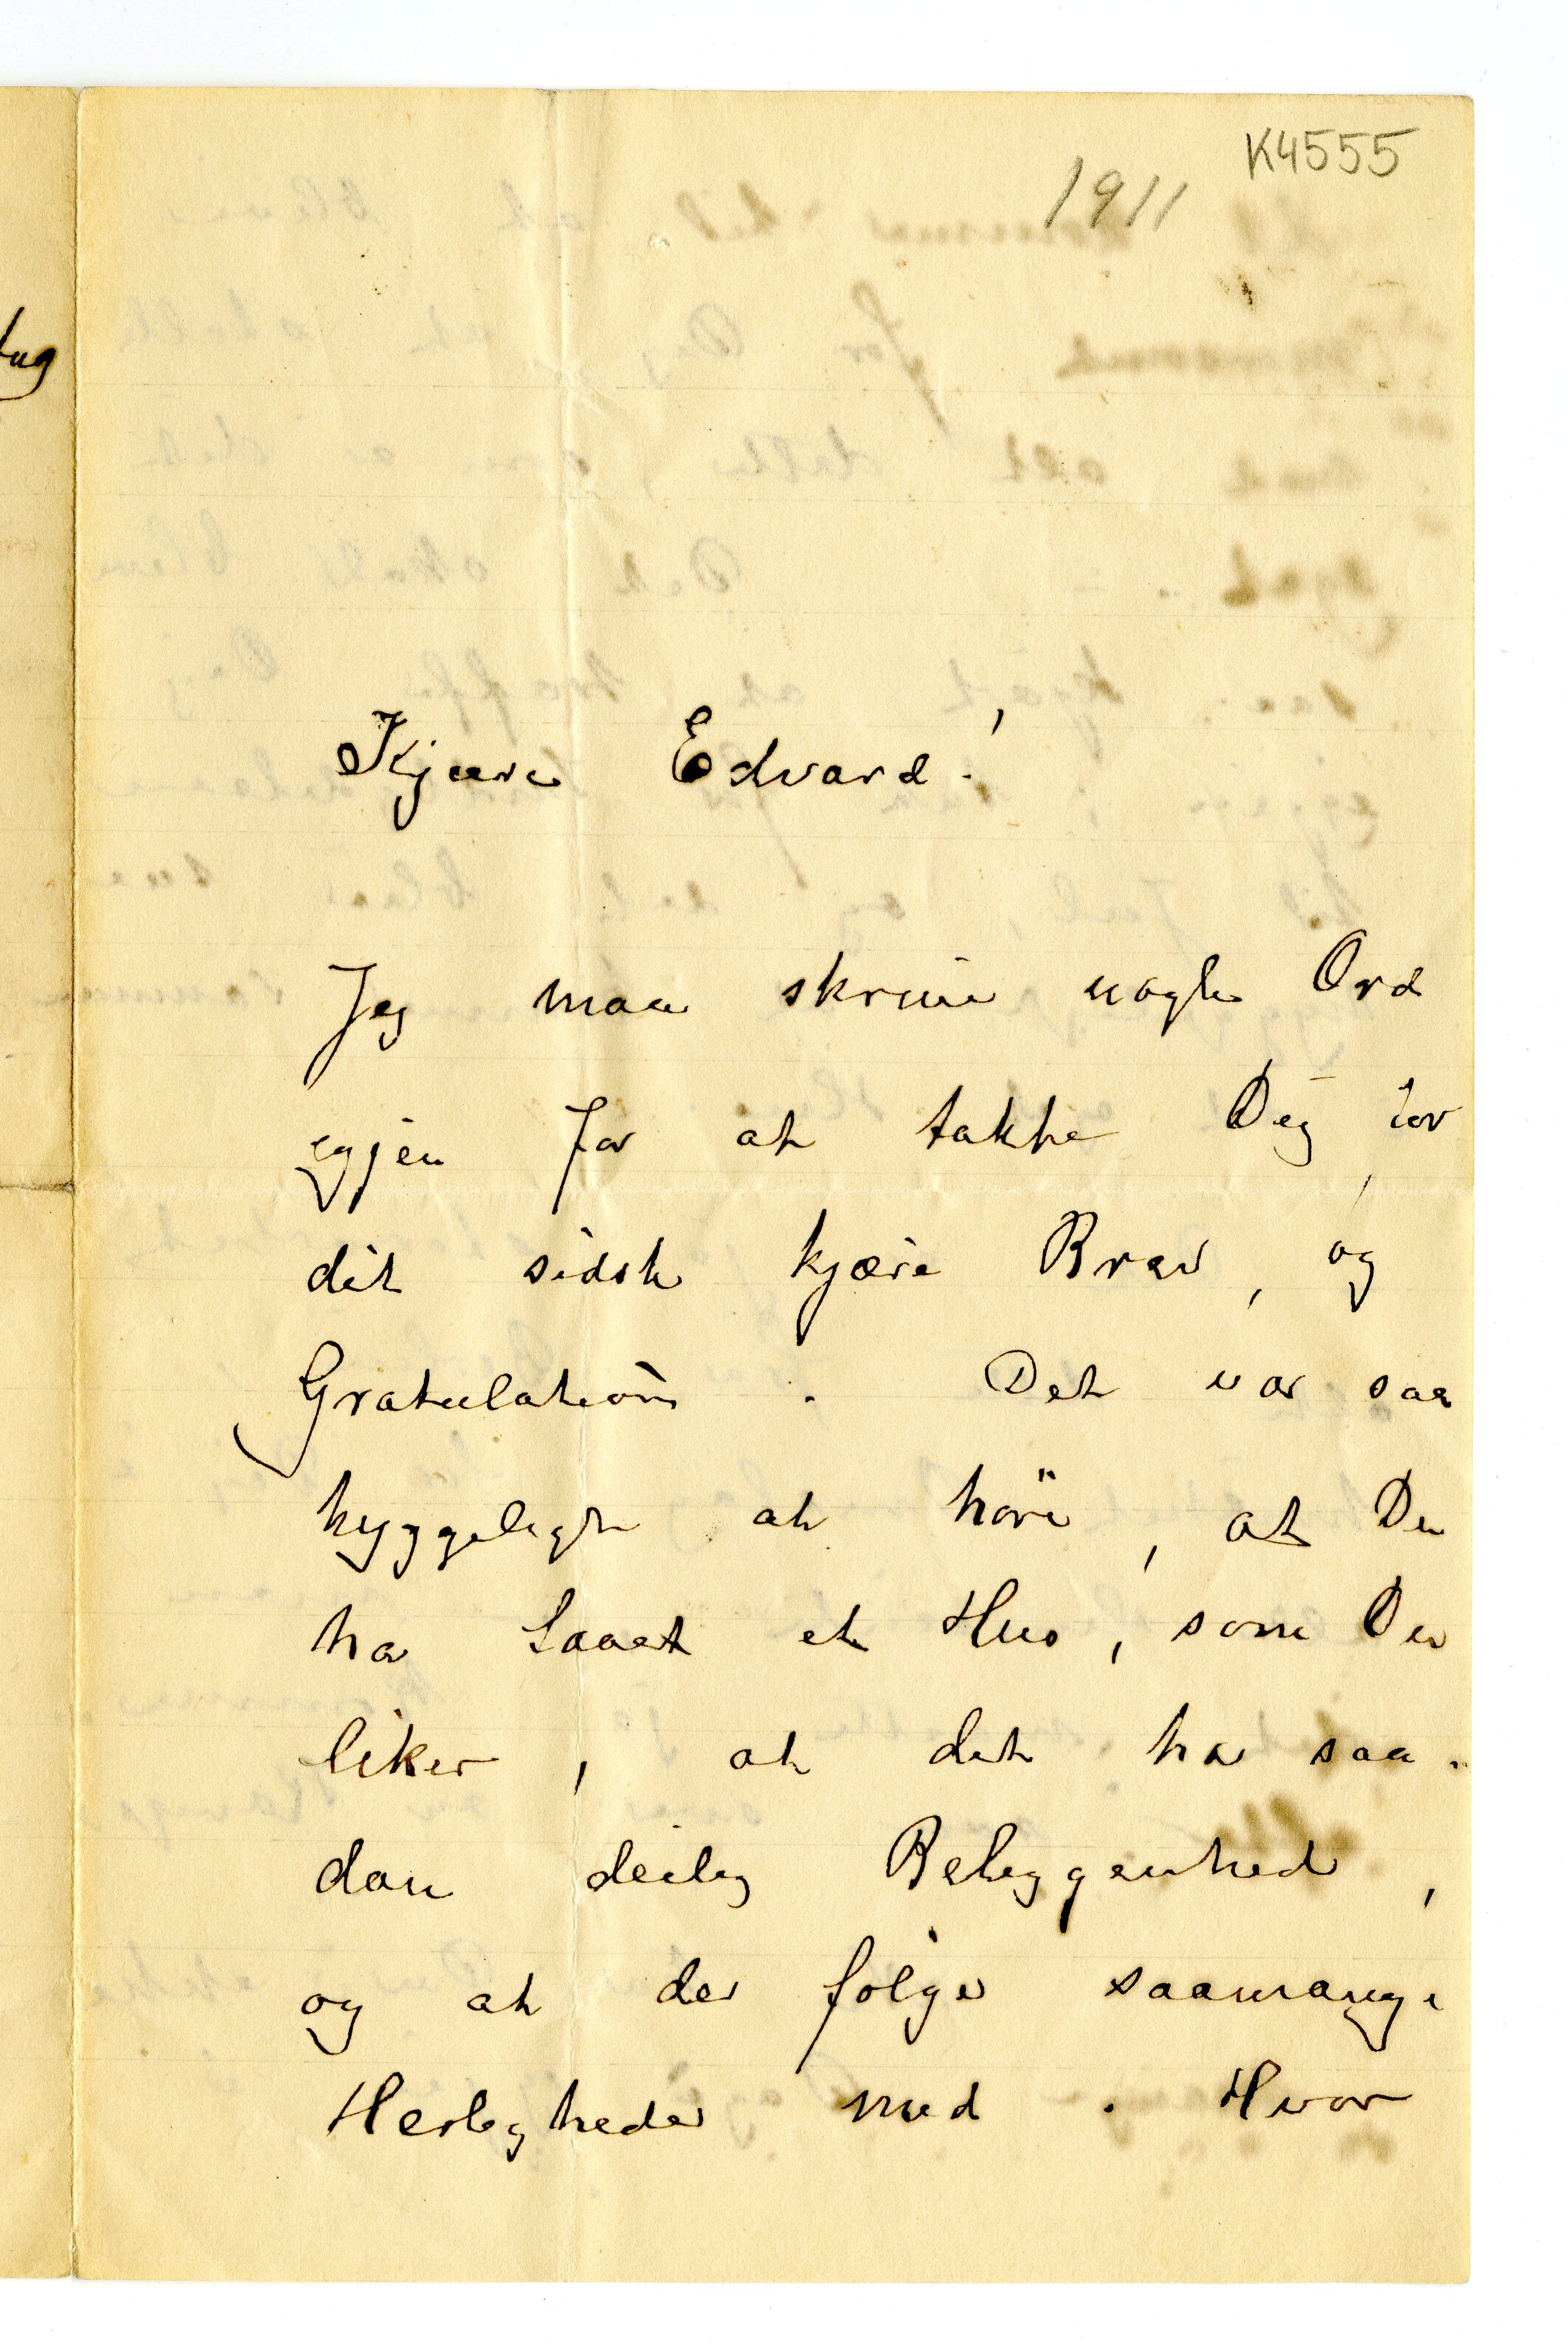 K4555
1911
Kjære Edvard!
Jeg maa skrive nogle Ord
egjen for at takke Deg for
dit sidste kjære Brev, og
Gratulation. Det var saa
hyggeligt at höre, at Du
har faaet et Hus, som Du
liker, at det har saa-
dan deilig Beliggenhed,
og at der følger saamange
Herligheder med. Hvor